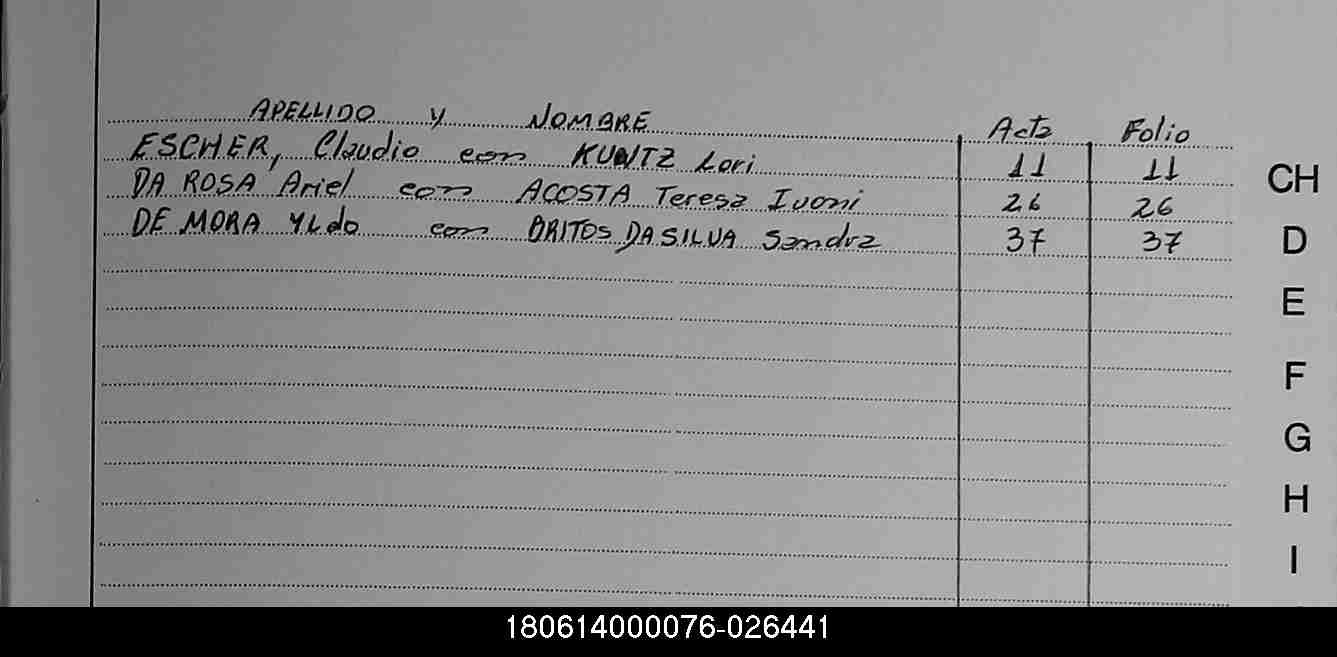 APELLIDO Y NOMBRE Acta Folio
ESCHER, Claudio con KUNTZ Lori 11 11
DA ROSA Ariel con ACOSTA Teresa Ivoni 26 26
DE MORA YLdo con BRITOS DA SILVA Sandra 37 37
CH
D
E
F
G
H
I
180614000076-026441